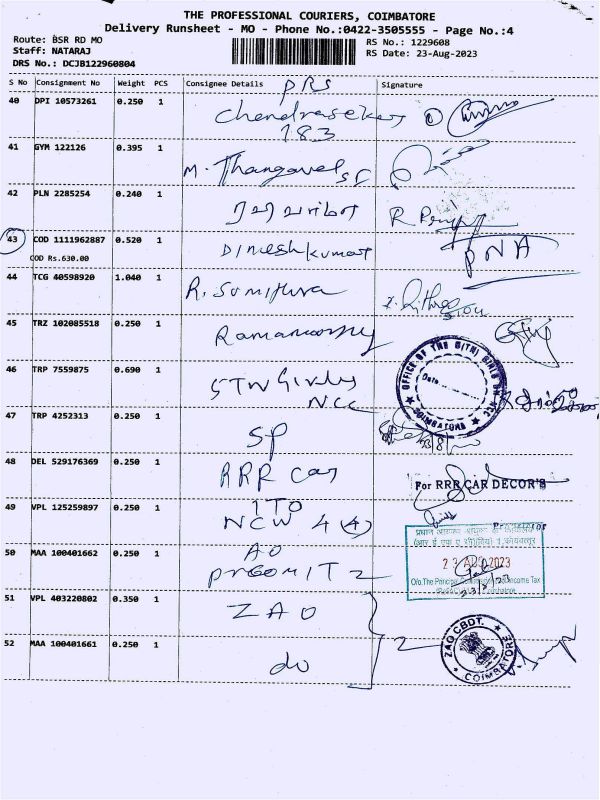 THE PROFESSIONAL COURIERS, COIMBATORE
Delivery Runsheet - MO - Phone No.:0422-3505555 - Page No.:4
Route: BSR RD MO
RS No.: 1229608
Staff: NATARAJ
RS Date: 23-Aug-2023
DRS No.: DCJB122960804
S No Consignment No Weight PCS Consignee Details PRS Signature
40 DPI 10573261 0.250 1 Chandrasekar
183
41 GYM 122126 0.395 1 M. Thangavel
42 PLN 2285254 0.240 1
43 COD 1111962887 0.520 1 Dineshkumar PNA
COD Rs.630.00
44 TCG 40598920 1.040 1 R. Sumithra
45 TRZ 102085518 0.250 1 Ramamoorthy
46 TRP 7559875 0.690 1 5TN Girls
NCC
OFFICE OF THE 5(TN) GIRLS BN NCC
Date
COIMBATORE
47 TRP 4252313 0.250 1 SP
48 DEL 529176369 0.250 1 RRR Car For RRR CAR DECOR'S
49 VPL 125259897 0.250 1 ITO
NCW 4 (4)
Proprietor
50 MAA 100401662 0.250 1 AO
PrCOMIT 2
23 AUG 2023
O/o.The Principal Commissioner of Income Tax
Coimbatore
51 VPL 403220802 0.350 1 ZAO
52 MAA 100401661 0.250 1 do
ZAO CBDT.
COIMBATORE